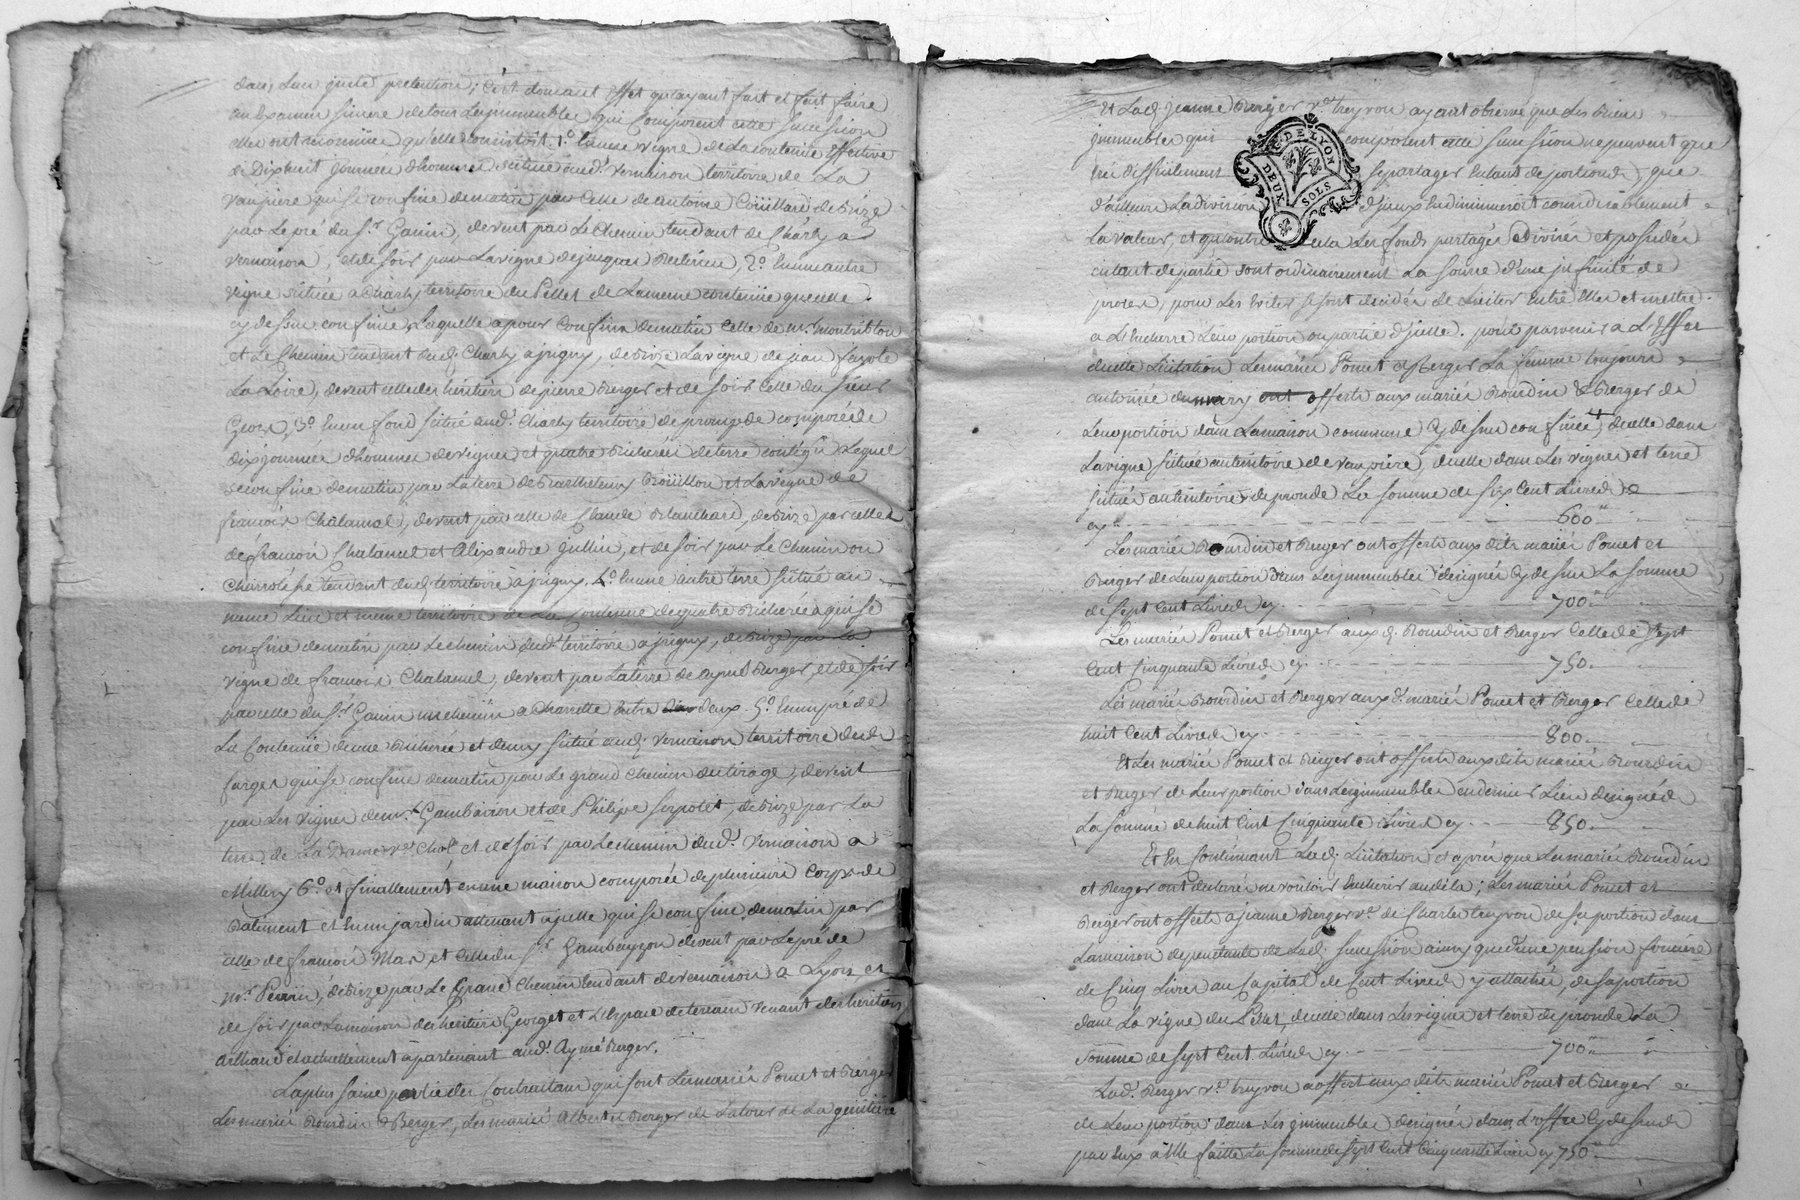 dans leur juste pretention; c'est donc en effet qu'ayant fait et fait faire
un Examen sincere de tous les immeubles qui Composent cette succession
elles ont reconnüe qu'elle Consistoit 1.º En une vigne de la Contenüe Effective
de Dixhuit journées d'hommes scituée aud.t vernaison territoire de La
vaupiere qui se confine de matin par Celle de antoine Coüillard de bize
par Le pré du S.r Gonin, de vent par Le Chemin tendant de Charly a
vernaison, et de soir par La vigne de jacques 2.º En une autre
vigne scituée a Charly territoire du Pellet de La meme contenüe que celle
cy dessus confinée Laquelle a pour Confins de matin Celle de m.r montribloud
et Le Chemin tendant dud. Charly a jrigny, de bize La vigne de jean fayole
La Loire, de vent celle des héritiers de pierre Berger et de soir Celle du sieur
3.º En un fond scitué aud.t Charly territoire de pronde composé de
dix journées d'hommes de vignes et quatre Bicherées de terre contigüe Lequel
se confine de matin par La terre de Barthelemy Broüillon et La vigne de
françois Chalamel, de vent par celle de Claude Blanchard, de bize par celles
de françois Chalamel et Alexandre jullin, et de soir par Le Chemin ou
tendant dud. territoire a jrigny. 4.º En une autre terre scituée au
meme Lieu et meme territoire de La Contenüe de quatre Bicherées qui se
confine de matin par Le chemin dud.t territoire a jrigny, de bize par La
vigne de françois Chalamel, de vent par La terre de aymé Berger, et de soir
par celle du S.r Gonin un chemin a Charrette entre deux. 5.º En un pré de
La Contenüe de une Bicherée et demy scitué aud. vernaison territoire des
farges qui se confine de matin par Le grand chemin du tirage, de vent
par Les vignes de m.r Gambaizon et de Philipe serpolet, de bize par La
terre de La Dame v.ve et de soir par Le chemin dud.t vernaison a
Millery 6.º et finallement en une maison composée de plusieurs Corps de
Batiment et En un jardin attenant ajcelle qui se confine de matin par
celle de françois Mas et Celle du S.r Gambayzon de vent par Le pré de
m.r Perrin, de bize par Le Grand Chemin tendant de vernaison a Lyon et
de soir par La maison des heritiers Georget et L'Espace de terrain venant des heritiers
Arthaud et actuellement apartenant aud.t Aymé Berger.
La plus saine partie des Contractans qui sont Les mariés Pomet et Berger
Les mariés Bourdin et Berger, Les mariés Albert et Berger de L'atour de La genitiere
Et Lad. jeanne Berger v.ve treyvon ayant observé que Les Biens
jmmeubles qui composent cette succession ne peuvent que
tres difficilement se partager En tant de portions, que
d'ailleurs La division d'jceux En diminueroit considerablement
La valeur, et qu'outre cela Les fonds partagés Divisés et possedés
en tant de partie sont ordinairement La source d'une jnfinité de
proces, pour Les Eviter se sont decidés de Liciter Entre Elles et mettre
a L'Enchere Leur portion ou partie d'jcelle. pour parvenir a L'Effet
de celle Licitation Les mariés Pomet et Berger La femme toujours
autorisée du mary ont offerts aux mariés Bourdin et Berger de
Leur portion dans La maison commune Cy dessus confinée, de celle dans
La vigne scituée au territoire de vaupiere, de celle dans Les vignes et terre
scitués au territoire de pronde La somme de six Cent Livres
cy - 600"
Les mariés Bourdin et Berger ont offerts aux dits mariés Pomet et
Berger de Leur portion dans Les jmmeubles designés Cy dessus La somme
de sept Cent Livres cy - 700"
Les mariés Pomet et Berger aux d. Bourdin et Berger Celle de Sept
Cent Cinquante Livres cy - 750.
Les mariés Bourdin et Berger aux d.t mariés Pomet et Berger Celle de
huit Cent Livres cy - 800.
Et Les mariés Pomet et Berger ont offerts aux dits mariés Bourdin
et Berger de Leur portion dans Les jmmeubles en dernier Lieu designés
La somme de huit Cent Cinquante Livres cy - 850.
Et En Continuant Lad. Licitation et après que Les mariés Bourdin
et Berger ont declaré ne vouloir Encherir au dela; Les mariés Pomet et
Berger ont offerts a jeanne Berger v.ve de Charles treyvon de sa portion dans
La maison dependante de Lad. succession ainsy que d'une pension fonciere
de Cinq Livres au Capital de Cent Livres y attachée, de sa portion
dans La vigne du Pellet, de celle dans Les vignes et terre de pronde La
somme de sept Cent Livres cy - 700"
Lad. Berger v.ve treyvon a offert aux dits mariés Pomet et Berger
de Leur portion dans Les jmmeubles designés dans L'offre Cy dessus
par Eux a Elle faitte La somme de sept Cent Cinquante Livres cy 750"
G. DE LYON
DEUX SOLS